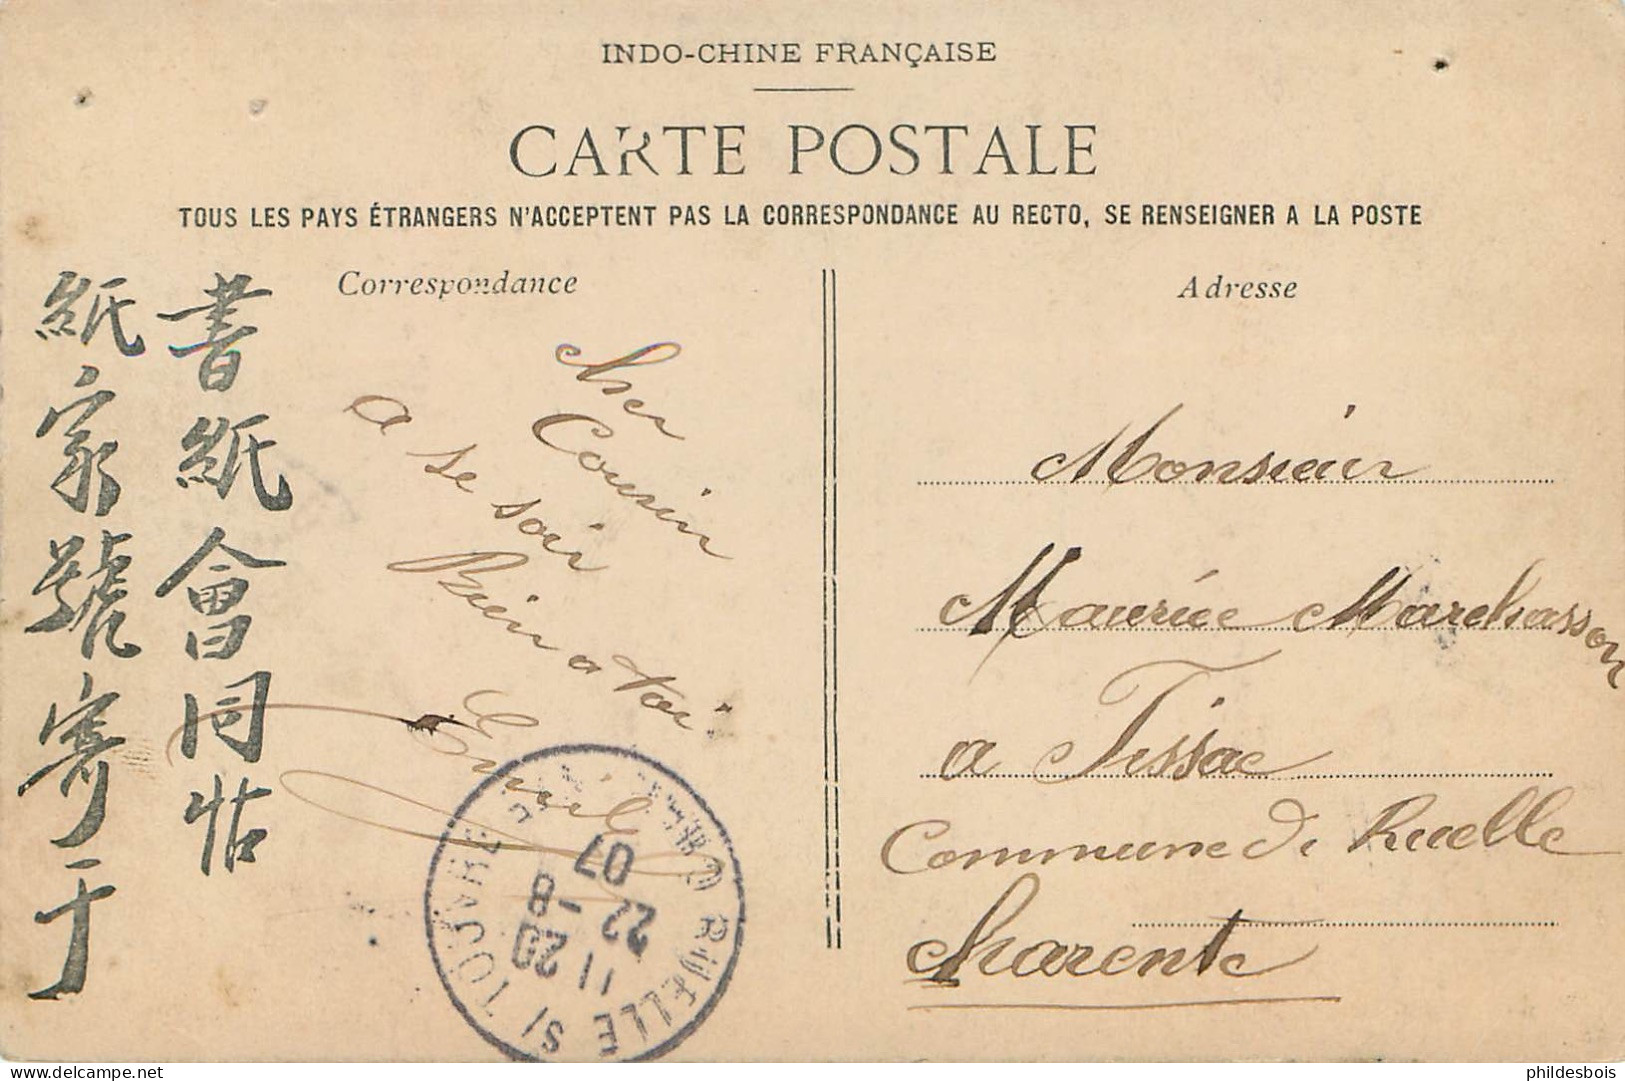 INDO-CHINE FRANÇAISE
CARTE POSTALE
TOUS LES PAYS ÉTRANGERS N'ACCEPTENT PAS LA CORRESPONDANCE AU RECTO, SE RENSEIGNER A LA POSTE
Correspondance
書紙會同帖
紙家號寄于
Cher
Cousin
a se soir
Bien a toi
Emile
RUELLE S/ TOUVRE
11 20
22 - 8
07
Adresse
Monsieur
Maurice Marchasson
a Tissac
Commune de Ruelle
Charente
phildesbois